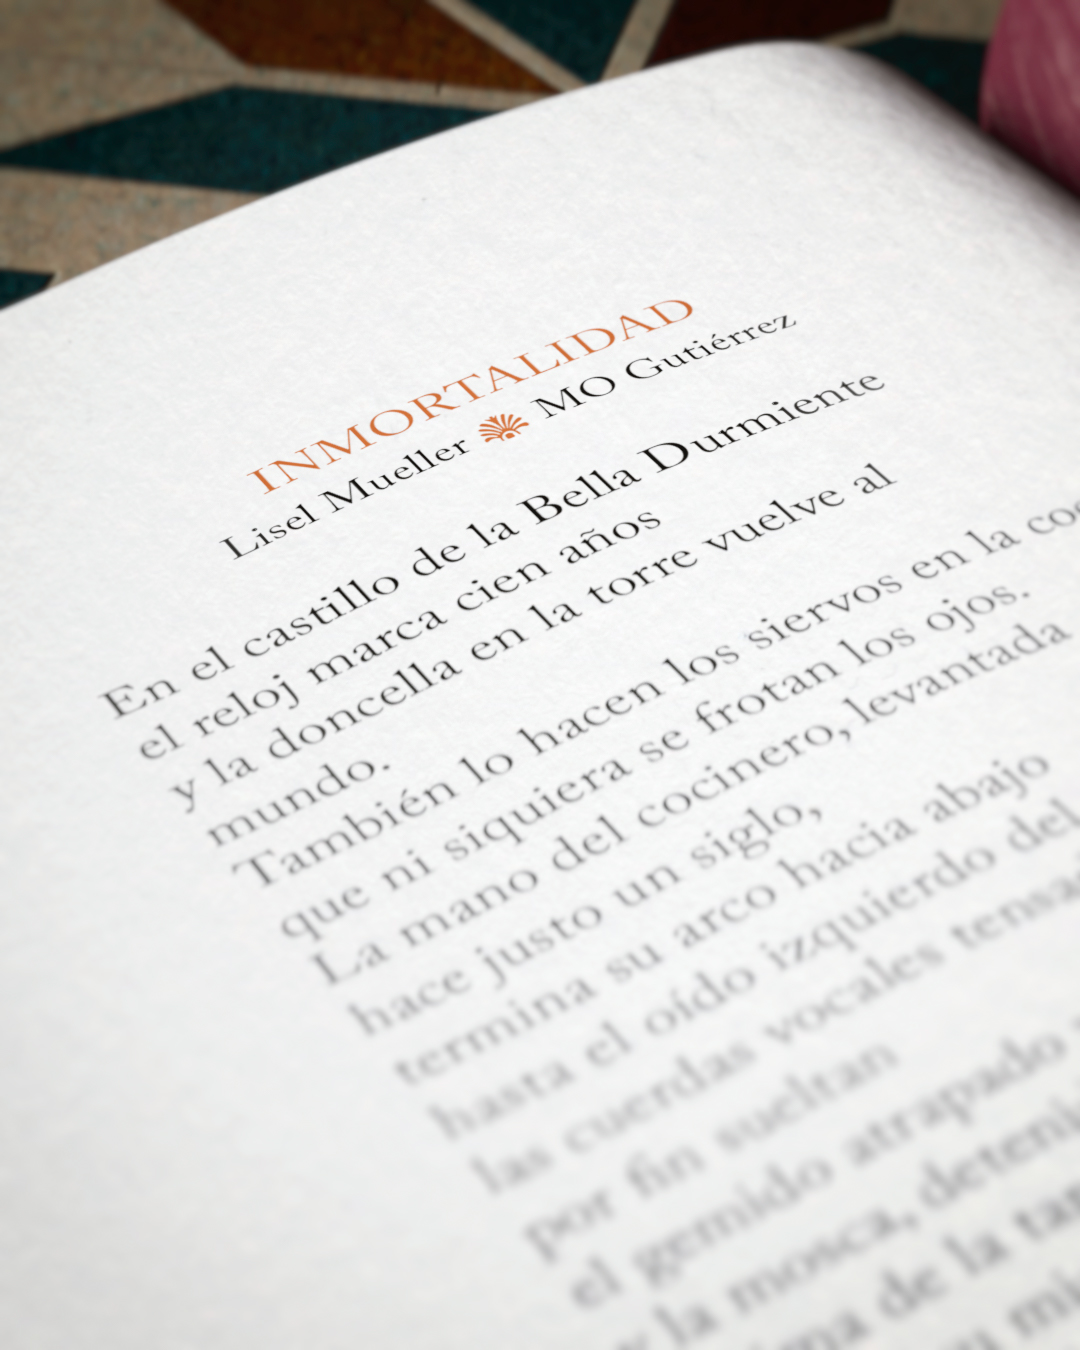 INMORTALIDAD
Lisel Mueller MO Gutiérrez
En el castillo de la Bella Durmiente
el reloj marca cien años
y la doncella en la torre vuelve al
mundo.
También lo hacen los siervos en la
que ni siquiera se frotan los ojos.
La mano del cocinero, levantada
hace justo un siglo,
termina su arco hacia abajo
hasta el oído izquierdo del
las cuerdas vocales
por fin sueltan
el gemido atrapado
y la mosca,
de la